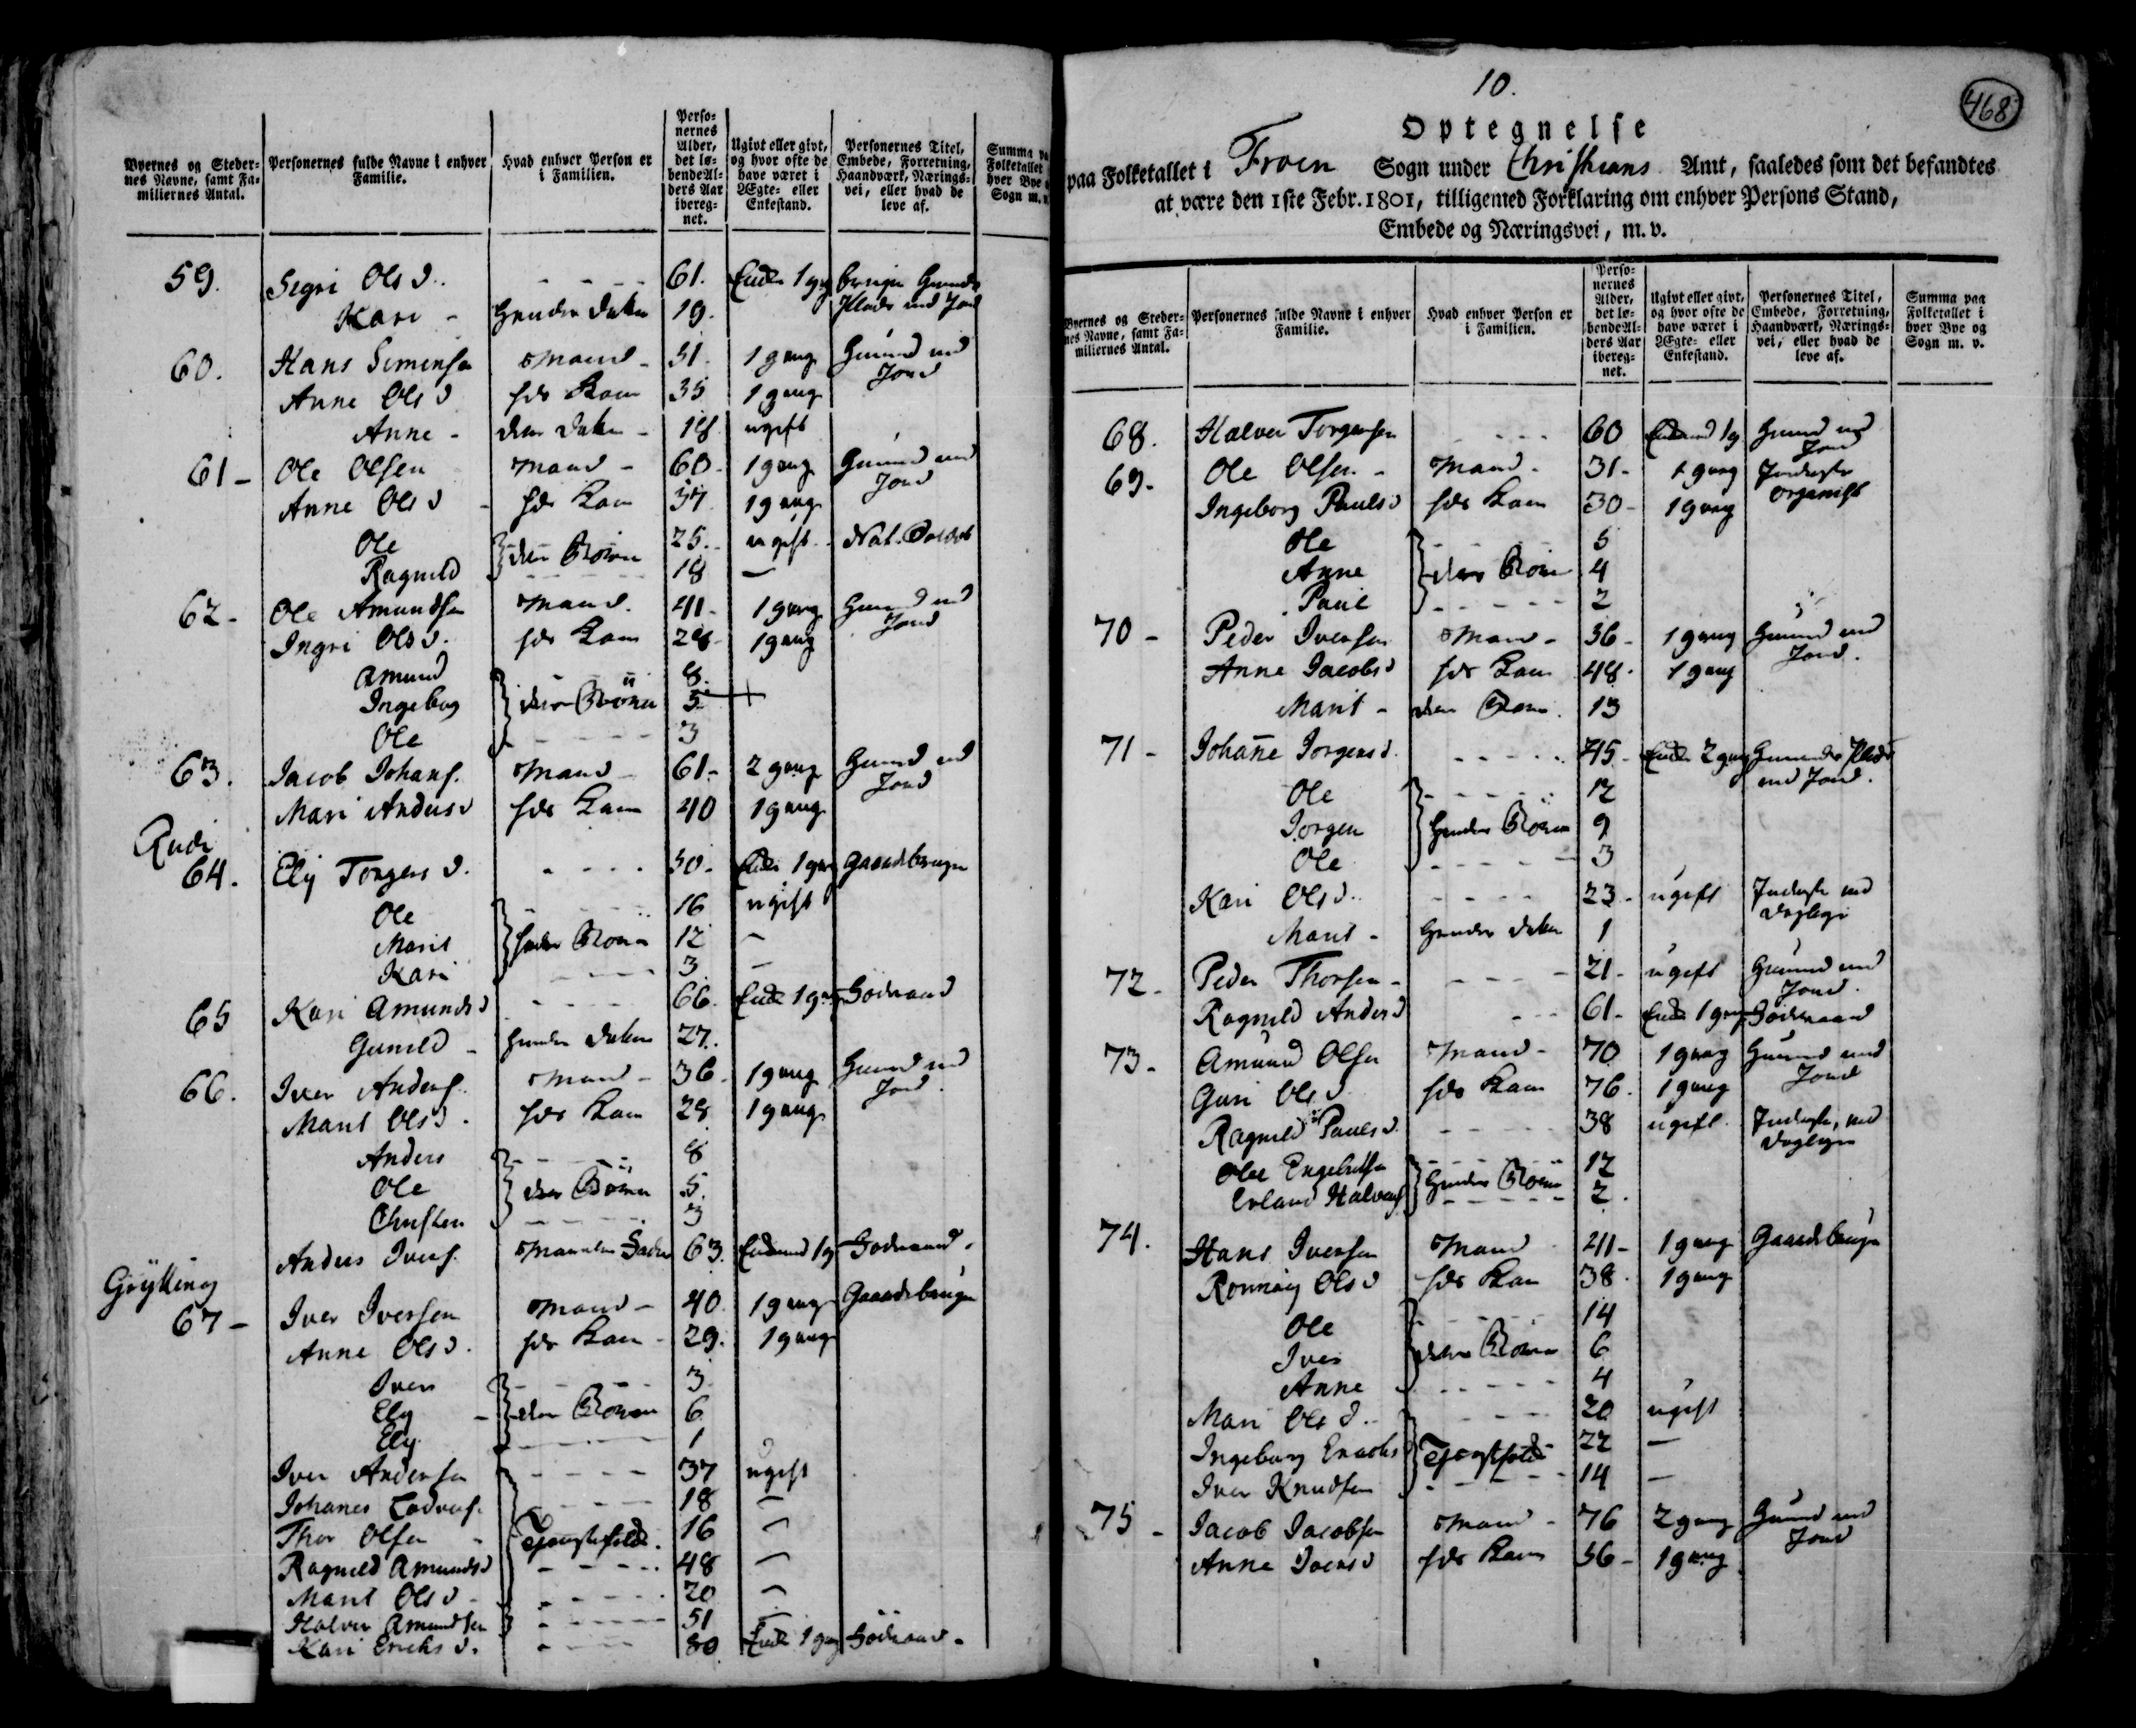 Byernes og Steder-
nes Navne, samt Fa-
miliernes Antal.
Personernes fulde Navne i enhver
Familie.
Hvad enhver Person er
i Familien.
Perso-
nernes
Alder,
det lø-
bende Al-
ders Aar
ibereg-
net.
Ugivt eller givt,
og hvor ofte de
have været i
Ægte- eller
Enkestand.
Personernes Titel,
Embede, Forretning,
Haandværk, Nærings-
vei, eller hvad de
leve af.
Summa pa
Folketallet
hver Bye
Sogn m.
59. Segri Olsd. 61. Enke 1 gang
Kari - Hendes Datter 19. Plads med Jord
60. Hans Simensen Mand - 51. 1 gang Huusmd med
Jord
Anne Olsd hs Kone 35 1 gang
Anne - deres Datter - 18 ugift
61 - Ole Olsen Mand - 60 - 1 gang Huusmd med
Jord
Anne Olsd - hs Kone 57 1 gang
Ole deres Börn 25. ugift Nat. Soldat
Ragnild 18 -
62 - Ole Amundsen Mand. 41 - 1 gang Huusmd med
Jord
Ingri Olsd. hs Kone 28 - 1 gang
Amund 8.
Ingebog deres Börn 5
Ole 3
63. Jacob Johans. Mand - 61 - 2 gang Huusmd med
Jord
Mari Andersd hs Kone 40 1 gang
Rudi
64. Ely Torgersd. 50. Enke 1 gang Gaardbruger
Ole 16 ugift
Marit hendes Börn 12 -
Kari 3 -
65 Kari Amundsd 66. Enke 1 gang Födraad
Gunild - Hendes Datter 27.
66. Iver Anders. Mand - 36 - 1 gang Huusmd med
Jord.
Marit Olsd. hs Kone 28 1 gang
Anders 8
Ole deres Börn 5.
Christen 3
Anders Ivers. Mandens Fader 63. Enkemd 1 g Födraad.
Grytting
67 - Iver Iversen Mand - 40 1 gang Gaardbruger
Anne Olsd. hs Kone - 29. 1 gang
Iver 3
Ely - deres Börn 6
Ely 1
Iver Andersen 37 ugift
Johanes 18 -
Thor Olsen - Tjenestefolk. 16 -
Ragnild Amundsd 48 -
Marit Olsd - 20 -
Halvor Amundsen 51
Kari Ericksd. 80 Enke 1 gang Födraad.
10.
468
Optegnelse
paa Folketallet i Froen Sogn under Christians Amt, saaledes som det befandtes
at være den 1ste Febr. 1801, tilligemed Forklaring om enhver Persons Stand,
Embede og Næringsvei, m. v.
Byernes og Steder-
nes Navne, samt Fa-
miliernes Antal.
Personernes fulde Navne i enhver
Familie.
Hvad enhver Person er
i Familien.
Perso-
nernes
Alder,
det lø-
bende Al-
ders Aar
ibereg-
net.
Ugivt eller givt,
og hvor ofte de
have været i
Ægte- eller
Enkestand.
Personernes Titel,
Embede, Forretning,
Haandværk, Nærings-
vei, eller hvad de
leve af.
Summa paa
Folketallet i
hver Bye og
Sogn m. v.
68. Halvor Torgersen 60 Enkemd 1 g Huusmd med
Jord
69. Ole Olsen - Mand - 31 - 1 gang Inderste
organist
Ingeborg Paulsd hs Kone 30 - 1 gang
Ole 5
Anne deres Börn 4
Paul 2
70 - Peder Iversen Mand - 56 - 1 gang Huusmd med
Jord.
Anne Jacobsd hs Kone 48. 1 gang
Marit - deres Barn. 13
71 - Johane Jorgensd. 45 - Enke 2 gang Plads
med Jord.
Ole 12
Jorgen Hendes Börn 9
Ole 3
Kari Olsd. 23 - ugift Inderste med
Dagleye
Marit - Hendes Datter 1
72. Peder Thorsen - 21 - ugift Huusmd med
Jord.
Ragnild Andersd 61 - Enke 1 gang Födraad
73 - Amund Olsen Mand - 70 1 gang Huusmd med
Jord
Guri Olsd hs Kone 76. 1 gang
Ragnild Paulsd. 38 ugift. Inderste, med
Dagleye
Ole Engebretsen Hendes Börn 12
Erland Halvors. 2.
74. Hans Iversen Mand 41 - 1 gang Gaardbruger
Ronnøy Olsd hs Kone 38. 1 gang
Ole 14
Iver deres Börn 6
Anne 4
Mari Olsd. 20 ugift
Ingeborg Ericksd Tjenestefolk 22 -
Iver Knudsen 14 -
75 - Jacob Jacobsen Mand - 76 2 gang Huusmd med
Jord
Anne Iversd hs Kone 56 - 1 gang